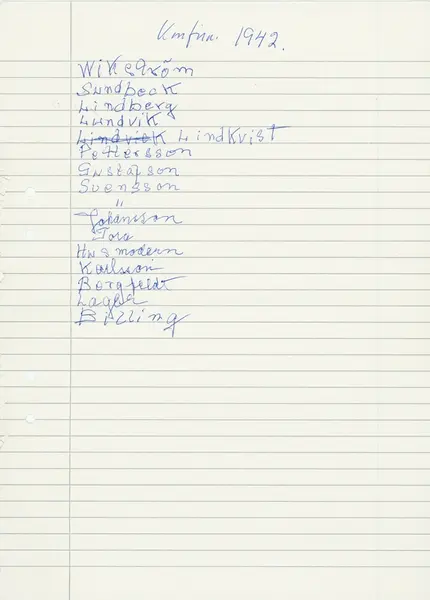 Konfirm. 1942.
Wikström
Sundbeck
Lindberg
Lundvik
Lindvick Lindkvist
Pettersson
Gustafson
Svensson
"
Johansson
Tora
Husmodern
Karlsson
Borgfeldt
Lager
Billing